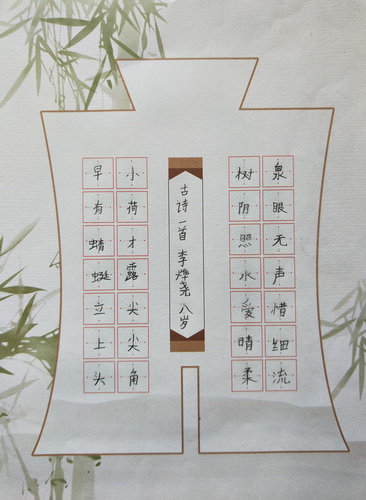 泉眼无声惜细流
树阴照水爱晴柔
古诗一首 李烨尧 八岁
小荷才露尖尖角
早有蜻蜓立上头